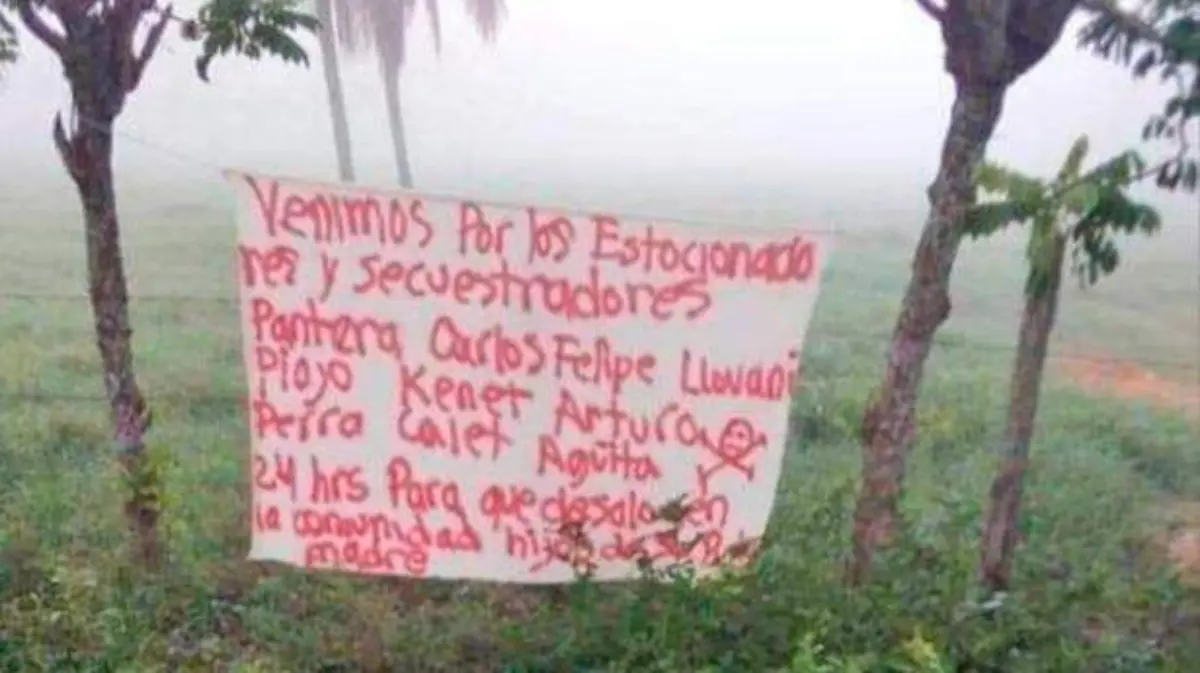 Venimos Por los Estocionado
res y secuestradores
Pantera, Carlos Felipe Lluvani
Piojo Kenet Arturo
Perra Calet Agüita
24 hrs Para que desalojen
la comunidad hijos de su Puta
madre